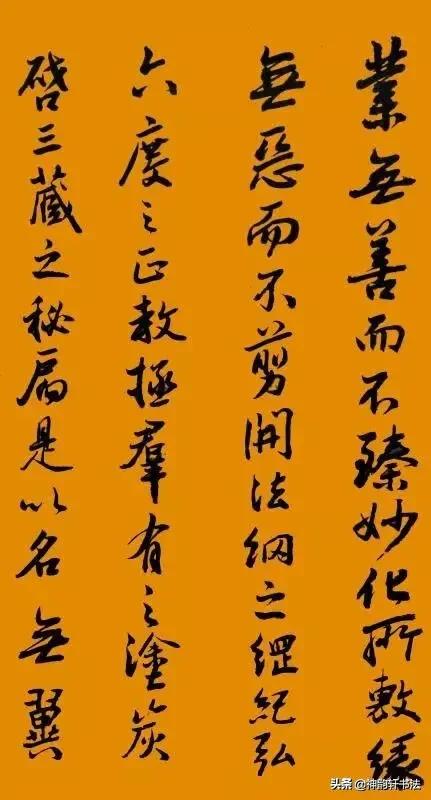 業無善而不臻妙化所敷緣
無惡而不剪開法網之綱紀弘
六度之正教拯羣有之塗炭
啓三藏之秘扃是以名無翼
头条 @神韵轩书法